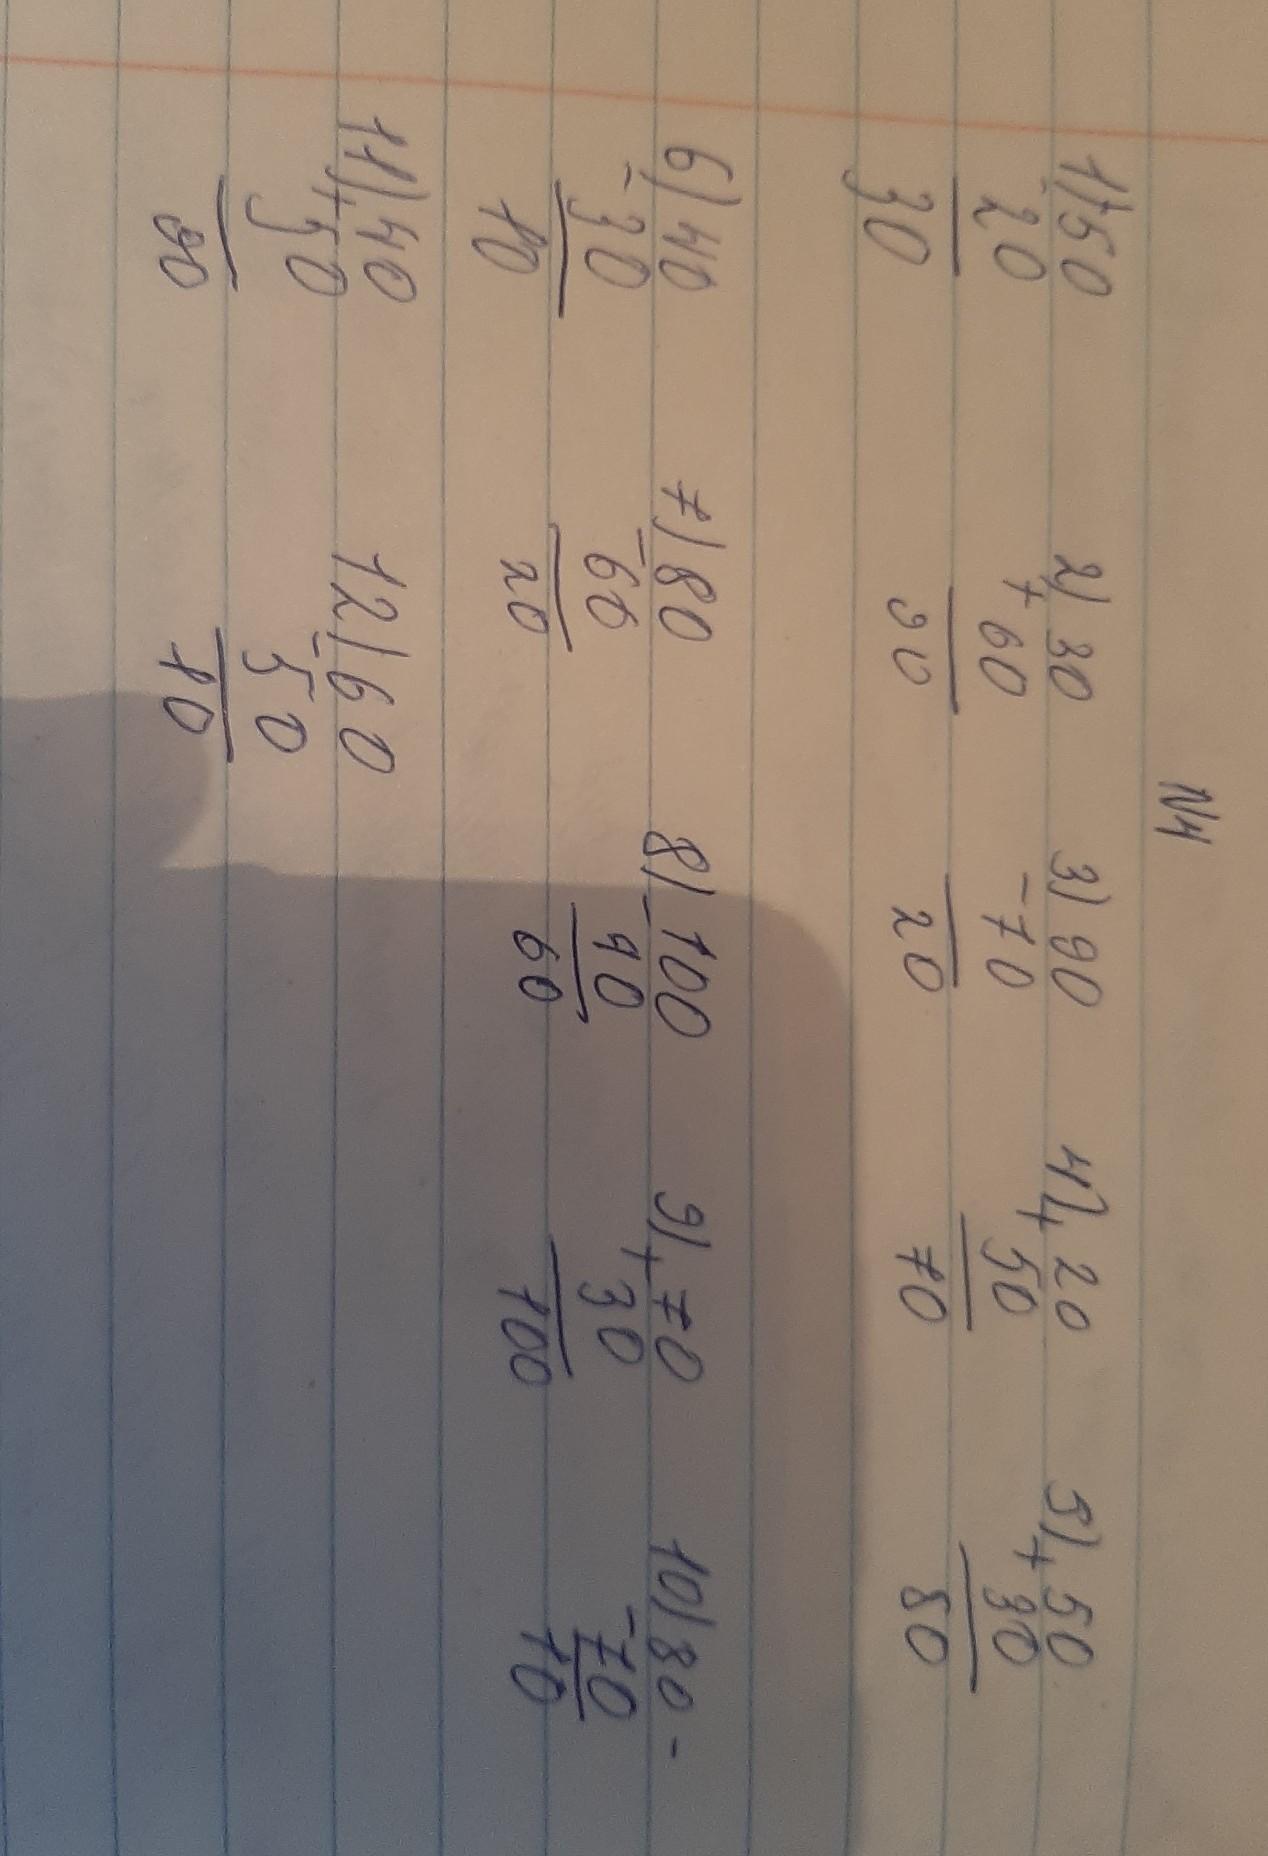 N4
1) 50 2) 30 3) 90 4) 20 5) 50
- 20 + 60 - 70 + 50 + 30
30 90 20 70 80
6) 40 7) 80 8) 100 9) 70 10) 80 -
- 30 - 60 - 40 + 30 - 70
10 20 60 100 10
11) 40 12) 60
+ 50 - 50
90 10